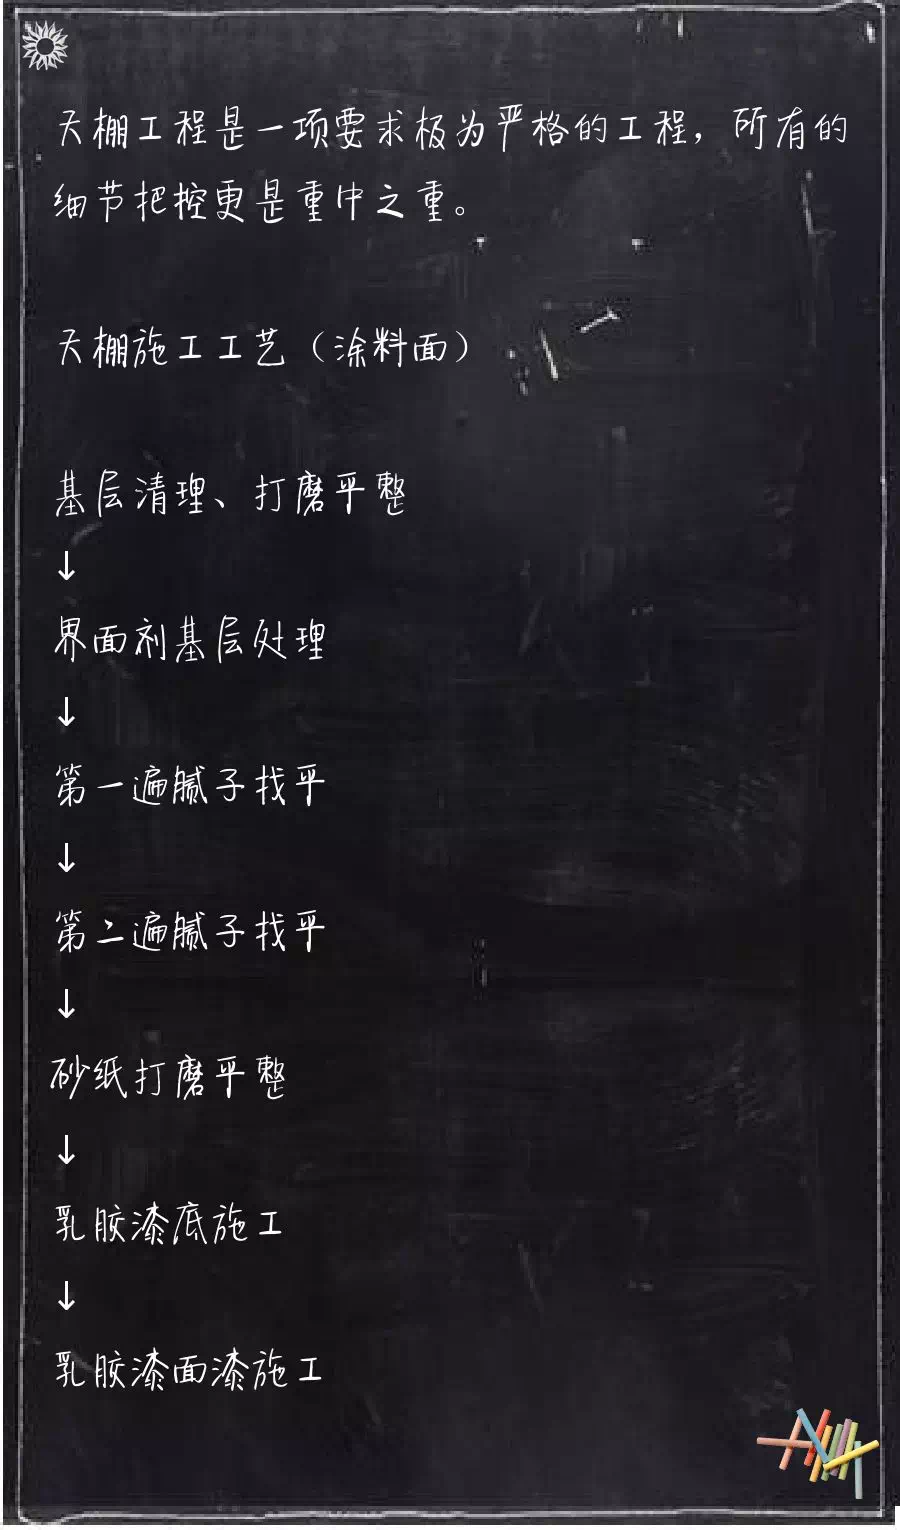 天棚工程是一项要求极为严格的工程，所有的
细节把控更是重中之重。
天棚施工工艺（涂料面）
基层清理、打磨平整
↓
界面剂基层处理
↓
第一遍腻子找平
↓
第二遍腻子找平
↓
砂纸打磨平整
↓
乳胶漆底施工
↓
乳胶漆面漆施工